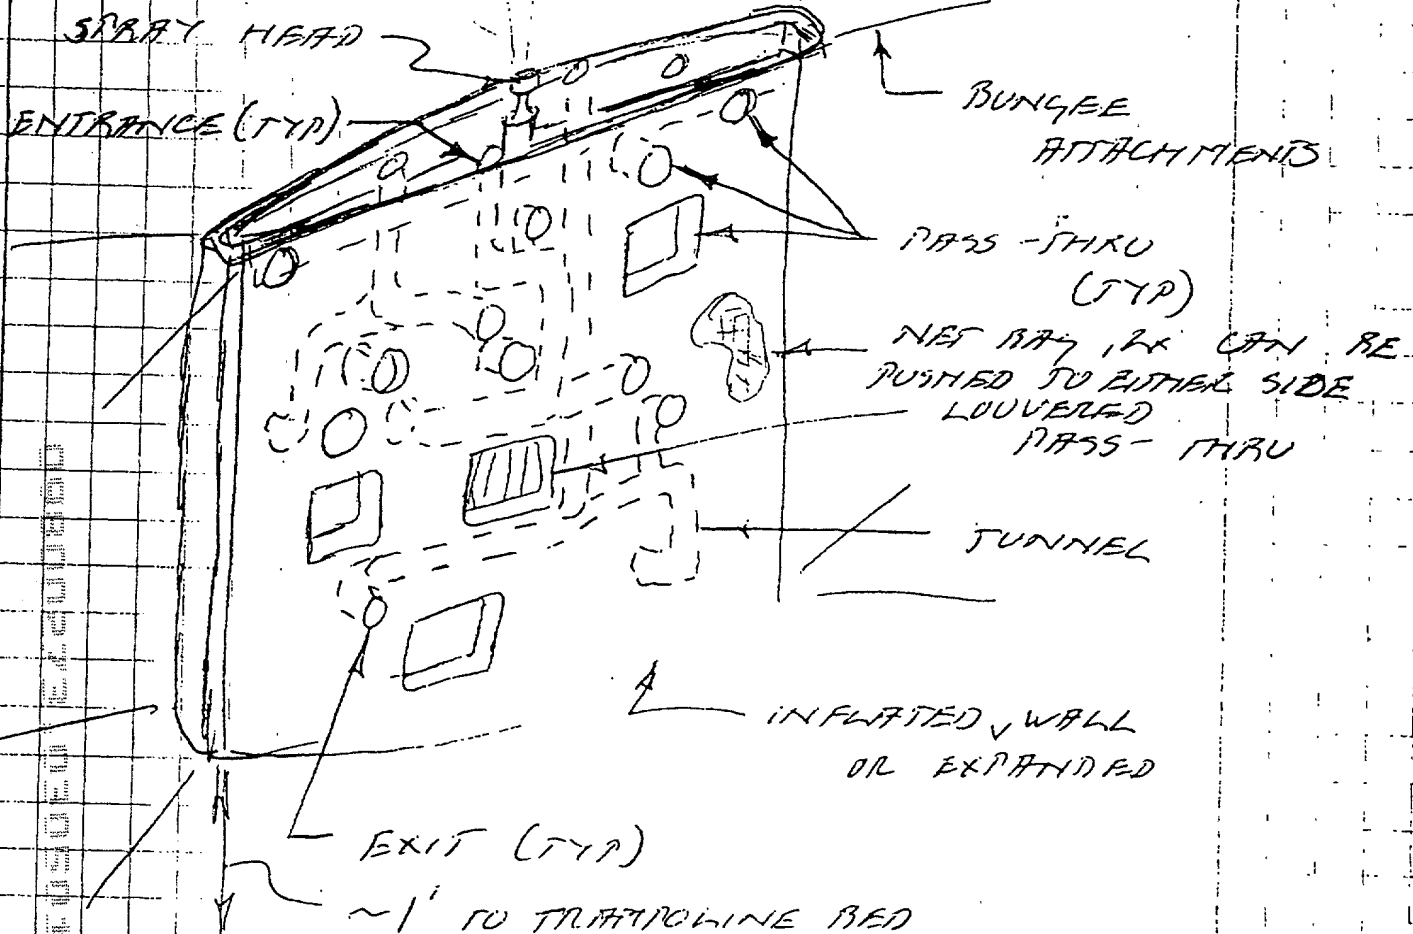 SPRAY HEAD
ENTRANCE (TYP)
BUNGEE
ATTACHMENTS
PASS-THRU
(TYP)
NET BAG, 2X CAN BE
PUSHED TO EITHER SIDE
LOUVERED
PASS-THRU
TUNNEL
INFLATED, WALL
OR EXPANDED
EXIT (TYP)
~1' TO TRAMPOLINE BED